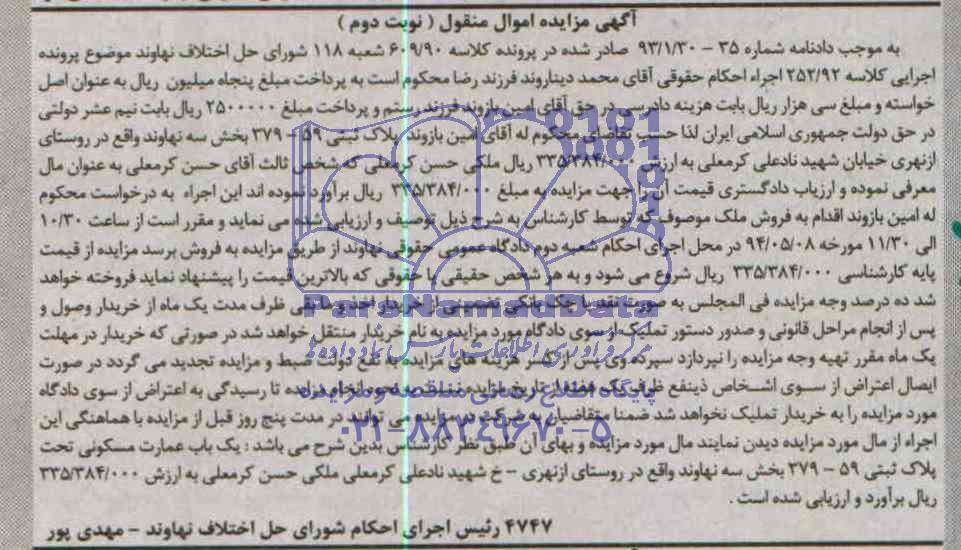 آگهی مزایده اموال منقول ( نوبت دوم )
به موجب دادنامه شماره ۳۵ - ۹۳/۱/۳۰ صادر شده در پرونده کلاسه ۶۰۹/۹۰ شعبه ۱۱۸ شورای حل اختلاف نهاوند موضوع پرونده
اجرایی کلاسه ۲۵۲/۹۲ اجراء احکام حقوقی آقای محمد دیناروند فرزند رضا محکوم است به پرداخت مبلغ پنجاه میلیون ریال به عنوان اصل
خواسته و مبلغ سی هزار ریال بابت هزینه دادرسی در حق آقای امین بازوند فرزند رستم و پرداخت مبلغ ۲۵۰۰۰۰۰ ریال بابت نیم عشر دولتی
در حق دولت جمهوری اسلامی ایران لذا حسب تقاضای محکوم له آقای امین بازوند پلاک ثبتی ۵۹ - ۳۷۹ بخش سه نهاوند واقع در روستای
ازنهری خیابان شهید نادعلی کرمعلی به ارزش ۳۳۵/۳۸۴/۰۰۰ ریال ملکی حسن کرمعلی که شخص ثالث آقای حسن کرمعلی به عنوان مال
معرفی نموده و ارزیاب دادگستری قیمت آن را جهت مزایده به مبلغ ۳۳۵/۳۸۴/۰۰۰ ریال برآورد نموده اند این اجراء به درخواست محکوم
له امین بازوند اقدام به فروش ملک موصوف که توسط کارشناس به شرح ذیل توصیف و ارزیابی شده می نماید و مقرر است از ساعت ۱۰/۳۰
الی ۱۱/۳۰ مورخه ۹۴/۰۵/۰۸ در محل اجرای احکام شعبه دوم دادگاه عمومی حقوقی نهاوند از طریق مزایده به فروش برسد مزایده از قیمت
پایه کارشناسی ۳۳۵/۳۸۴/۰۰۰ ریال شروع می شود و به هر شخص حقیقی یا حقوقی که بالاترین قیمت را پیشنهاد نماید فروخته خواهد
شد ده درصد وجه مزایده فی المجلس به صورت نقد یا چک بانکی تضمینی از خریدار اخذ و مابقی ظرف مدت یک ماه از خریدار وصول و
پس از انجام مراحل قانونی و صدور دستور تملیک از سوی دادگاه مورد مزایده به نام خریدار منتقل خواهد شد در صورتی که خریدار در مهلت
یک ماه مقرر تهیه وجه مزایده را نپردازد سپرده وی پس از کسر هزینه های مزایده به نفع دولت ضبط و مزایده تجدید می گردد در صورت
ایصال اعتراض از سوی اشخاص ذینفع ظرف یک هفته از تاریخ مزایده نسبت به نحوه انجام مزایده تا رسیدگی به اعتراض از سوی دادگاه
مورد مزایده را به خریدار تملیک نخواهد شد ضمنا متقاضیان به شرکت در مزایده می توانند در مدت پنج روز قبل از مزایده با هماهنگی این
اجراء از مال مورد مزایده دیدن نمایند مال مورد مزایده و بهای آن طبق نظر کارشناس بدین شرح می باشد : یک باب عمارت مسکونی تحت
پلاک ثبتی ۵۹ - ۳۷۹ بخش سه نهاوند واقع در روستای ازنهری - خ شهید نادعلی کرمعلی ملکی حسن کرمعلی به ارزش ۳۳۵/۳۸۴/۰۰۰
ریال برآورد و ارزیابی شده است .
۴۷۴۷ رئیس اجرای احکام شورای حل اختلاف نهاوند - مهدی پور
ParsNamadData
پایگاه اطلاع رسانی مناقصه و مزایده
۰۲۱-۸۸۳۴۹۶۷۰-۵